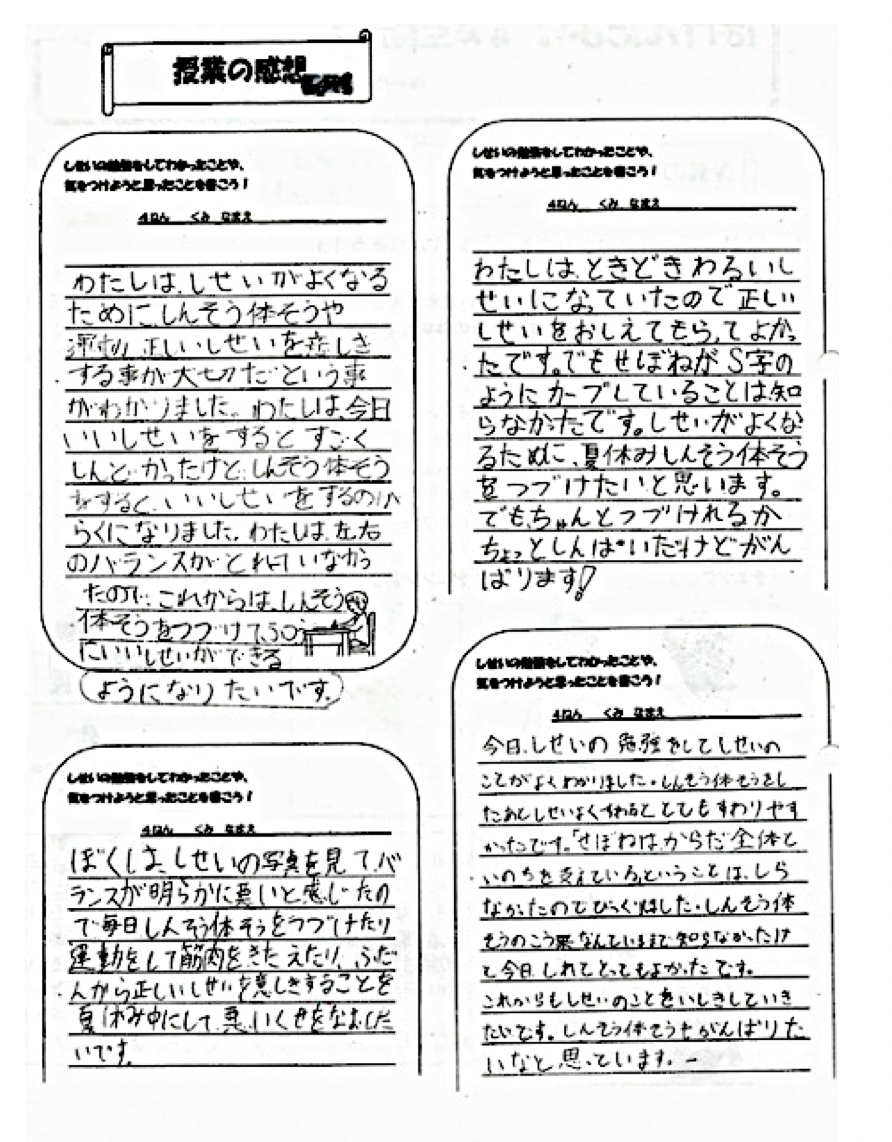 授業の感想
しせいの勉強をしてわかったことや、
気をつけようと思ったことを書こう！
4ねん くみ なまえ
わたしは、しせいがよくなる
ために、しんそう体そうや
正しいしせいを意しき
する事が大切だという事
がわかりました。わたしは、今日
いいしせいをするとすごく
しんどかったけど、しんそう体そう
をすると、いいしせいをするのが
らくになりました。わたしは、左右
のバランスがとれていなかっ
たので、これからは、しんそう
体そうをつづけて、
にいいしせいができる
ようになりたいです。
しせいの勉強をしてわかったことや、
気をつけようと思ったことを書こう！
4ねん くみ なまえ
わたしは、ときどきわるいし
せいになっていたので正しい
しせいをおしえてもらってよかっ
たです。でもせぼねがS字の
ようにカーブしていることは知
らなかたです。しせいがよくな
るために、夏休みしんそう体そう
をつづけたいと思います。
でも、ちゃんとつづけれるか
ちょっとしんぱいだけどがん
ばります!
しせいの勉強をしてわかったことや、
気をつけようと思ったことを書こう！
4ねん くみ なまえ
ぼくは、しせいの写真を見て、バ
ランスが明らかに悪いと感じたの
で毎日しんそう体そうをつづけたり
運動をして筋肉をきたえたり、ふだ
んから正しいしせいを意しきすることを
夏休み中にして、悪いくせをなおした
いです。
しせいの勉強をしてわかったことや、
気をつけようと思ったことを書こう！
4ねん くみ なまえ
今日、しせいの勉強をしてしせいの
ことがよくわかりました。しんそう体そうをし
たあとしせいよくすわるととてもすわりやす
かったです。「せぼねはからだ全体と
いのちを支えている」ということは、しら
なかったのでびっくりしました。しんそう体
そうのこう果なんていままで知らなかったけ
ど今日、しれてとってもよかったです。
これからもしせいのことをいしきしていき
たいです。しんそう体そうもがんばりた
いなと思っています。